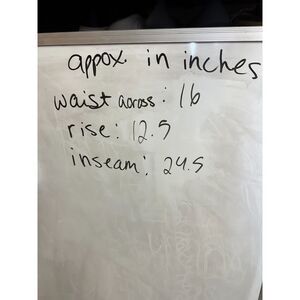 appox. in inches
waist across: 16
rise: 12.5
inseam: 24.5